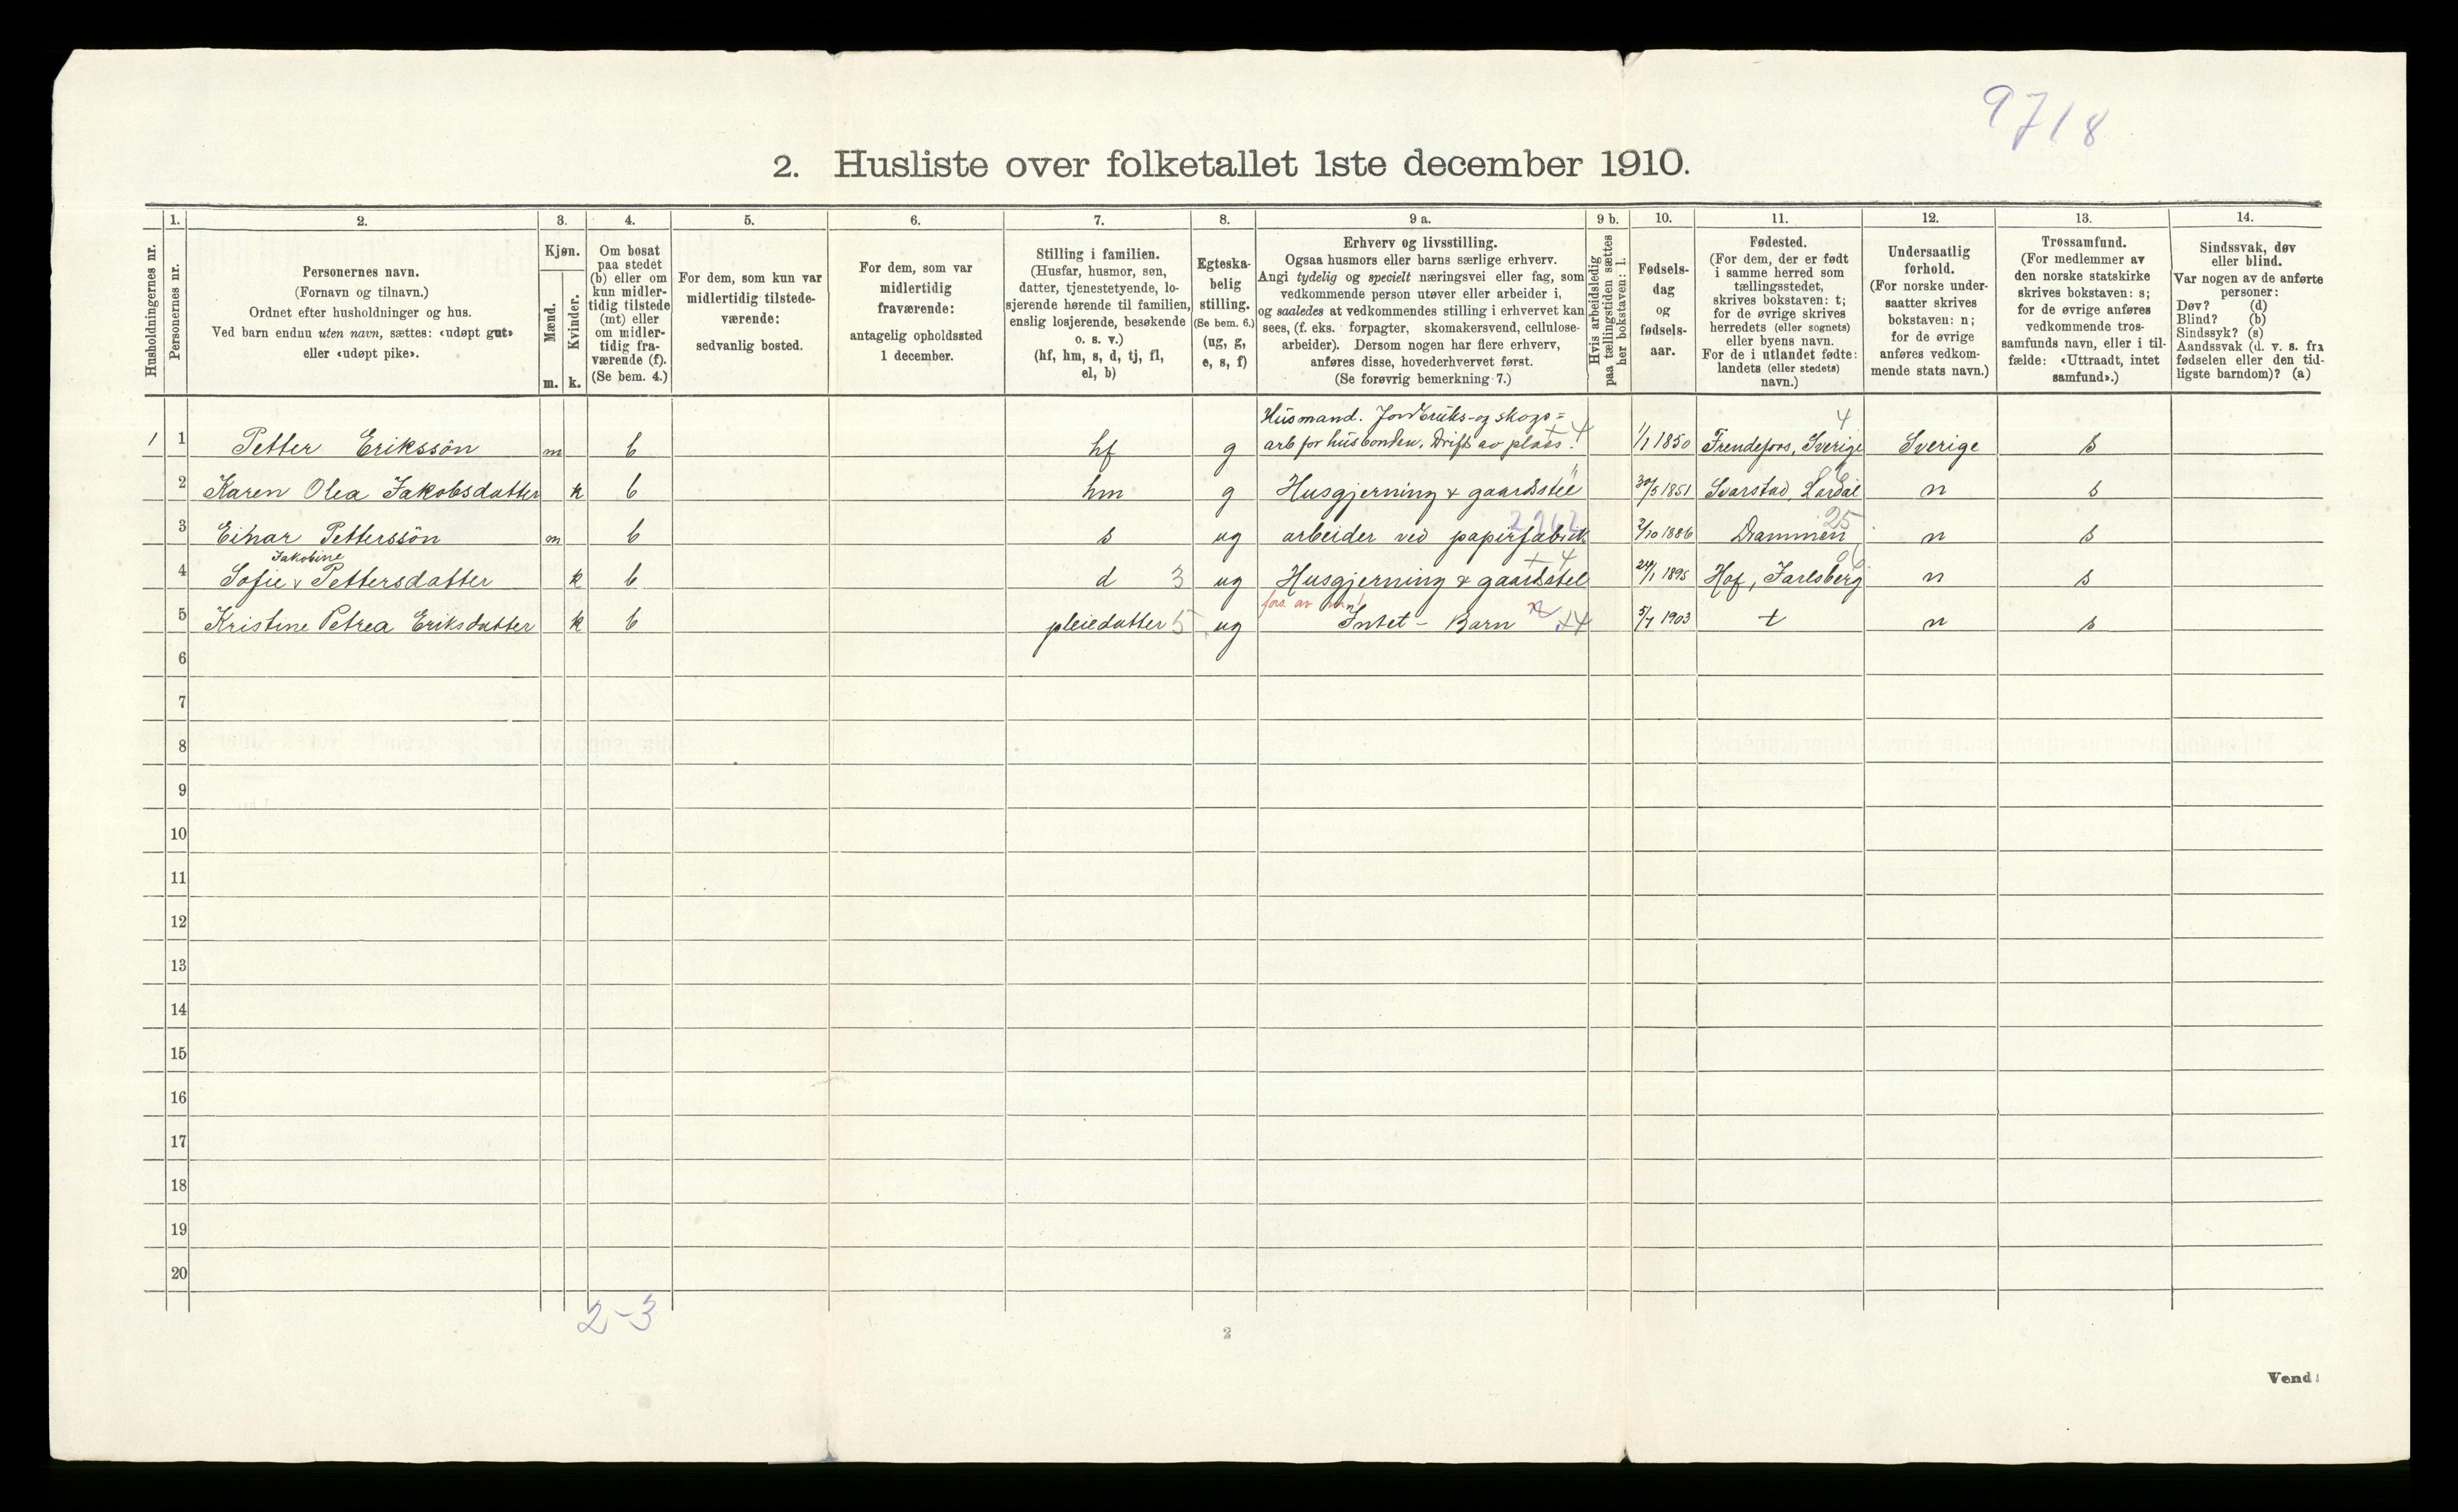 9718
2. Husliste over folketallet 1ste december 1910.
Husholdningernes nr.
1.
Personernes nr.
2.
Personernes navn.
(Fornavn og tilnavn.)
Ordnet efter husholdninger og hus.
Ved barn endnu uten navn, sættes: «udøpt gut»
eller «udøpt pike».
3.
Kjøn.
Mænd.
m.
Kvinder.
k.
4.
Om bosat
paa stedet
(b) eller om
kun midler-
tidig tilstede
(mt) eller
om midler-
tidig fra-
værende (f).
(Se bem. 4.)
5.
For dem, som kun var
midlertidig tilstede-
værende:
sedvanlig bosted.
6.
For dem, som var
midlertidig
fraværende:
antagelig opholdssted
1 december.
7.
Stilling i familien.
(Husfar, husmor, søn,
datter, tjenestetyende, lo-
sjerende hørende til familien,
enslig losjerende, besøkende
o. s. v.)
(hf, hm, s, d, tj, fl,
el, b)
8.
Egteska-
belig
stilling.
(Se bem. 6.)
(ug, g,
e, s, f)
9 a.
Erhverv og livsstilling.
Ogsaa husmors eller barns særlige erhverv.
Angi tydelig og specielt næringsvei eller fag, som
vedkommende person utøver eller arbeider i,
og saaledes at vedkommendes stilling i erhvervet kan
sees, (f. eks. forpagter, skomakersvend, cellulose-
arbeider). Dersom nogen har flere erhverv,
anføres disse, hovederhvervet først.
(Se forøvrig bemerkning 7.)
9 b.
Hvis arbeidsledig
paa tællingstiden sættes
her bokstaven: l.
10.
Fødsels-
dag
og
fødsels-
aar.
11.
Fødested.
(For dem, der er født
i samme herred som
tællingsstedet,
skrives bokstaven: t;
for de øvrige skrives
herredets (eller sognets)
eller byens navn.
For de i utlandet fødte:
landets (eller stedets)
navn.)
12.
Undersaatlig
forhold.
(For norske under-
saatter skrives
bokstaven: n;
for de øvrige
anføres vedkom-
mende stats navn.)
13.
Trossamfund.
(For medlemmer av
den norske statskirke
skrives bokstaven: s;
for de øvrige anføres
vedkommende tros-
samfunds navn, eller i til-
fælde: «Uttraadt, intet
samfund».)
14.
Sindssvak, døv
eller blind.
Var nogen av de anførte
personer:
Døv? (d)
Blind? (b)
Sindssyk? (s)
Aandssvak (d. v. s. fra
fødselen eller den tid-
ligste barndom)? (a)
Husmand. Jordbruks- og skogs= 4
1 1 Petter Erikssön m b hf g arb for husbonden. Drift av plass. + 4 1/1 1850 Frendefors, Sverige Sverige s
2 Karen Olea Jakobsdatter k b hm g Husgjerning & gaardsstel " 30/5 1851 Svarstad, Lardal 6 n s
3 Einar Petterssön m b s ug arbeider ved papirfabrik 2/10 1886 Drammen 25 n s
Jakobine + 4
4 Sofie v Pettersdatter k b d 3 ug Husgjerning & gaardsstel 24/1 1895 Hof, Jarlsberg 6 n s
fors. av
5 Kristine Petrea Eriksdatter k b pleiedatter 5 ug Intet - Barn ++ 5/7 1903 t n s
6
7
8
9
10
11
12
13
14
15
16
17
18
19
20
2-3
2
Vend!